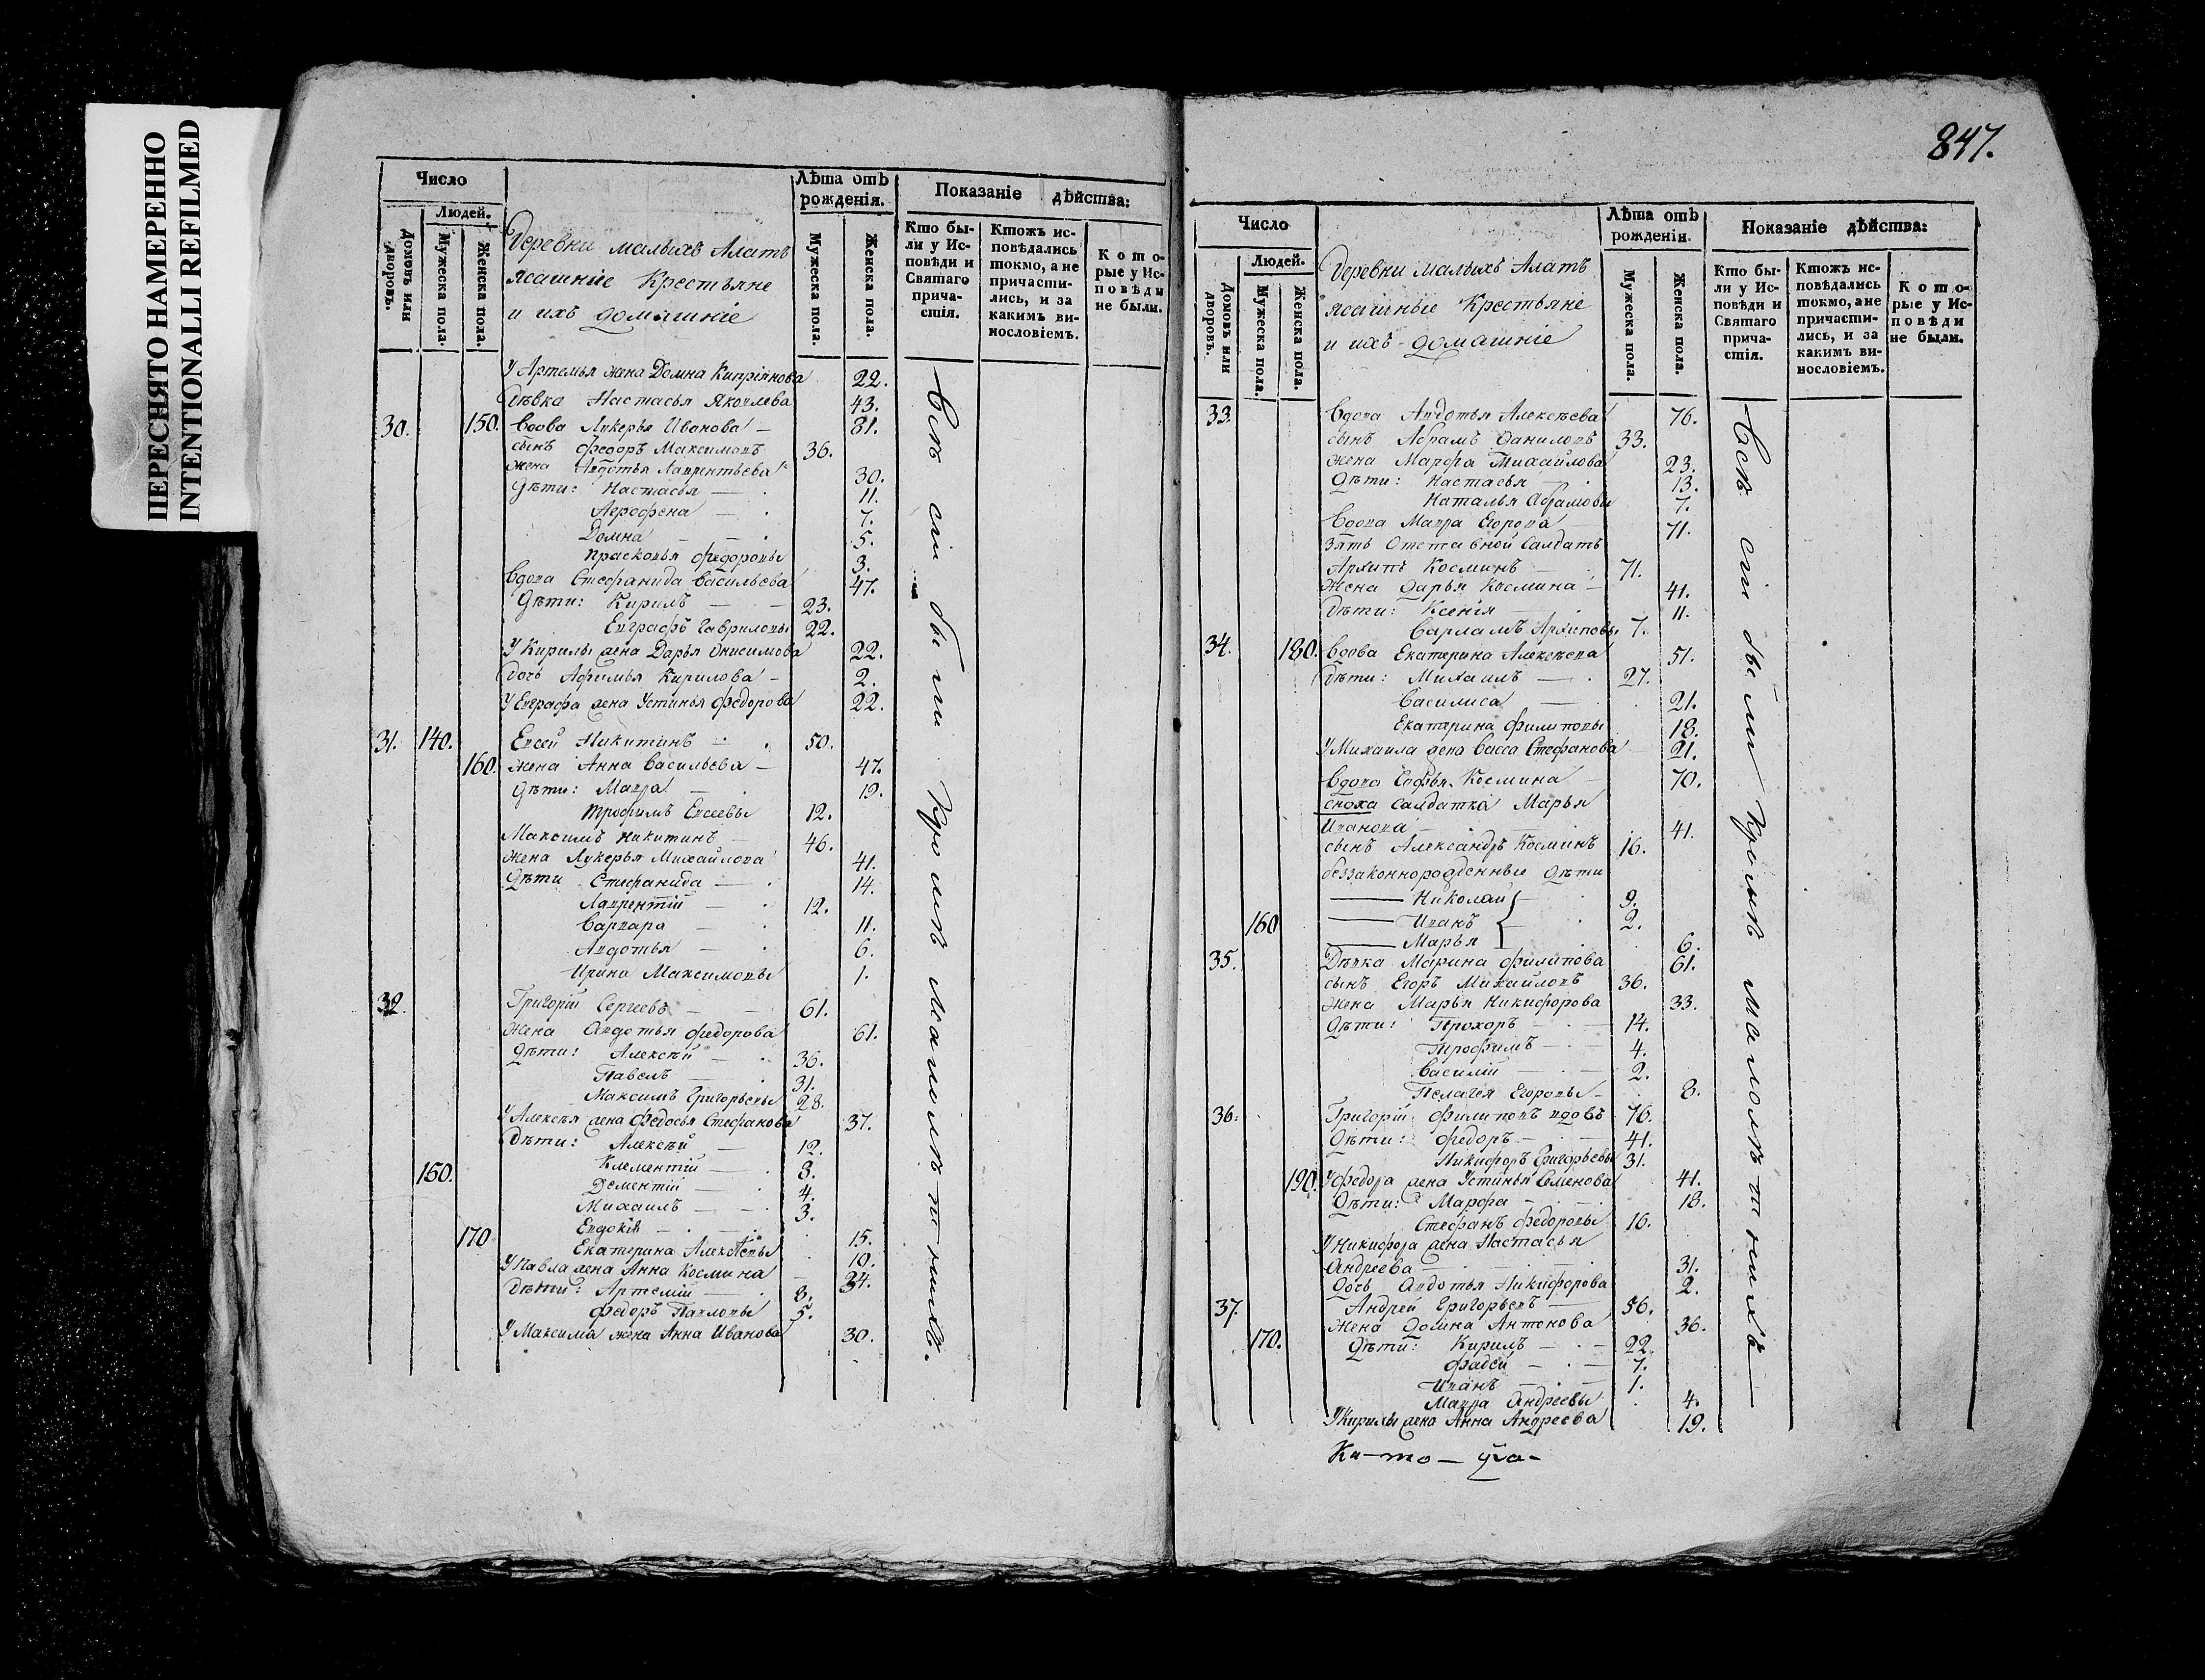 ПЕРЕСНЯТО НАМЕРЕННО
INTENTIONALLI REFILMED
Число
Людей.
Домовъ или дворовъ.
Мужеска пола.
Женска пола.
Деревни малыхъ Алатъ
ясашніе Крестьяне
и ихъ домашніе
Лѣта отъ рожденія.
Мужеска пола.
Женска пола.
Показаніе дѣйства:
Кто были у Исповѣди и Святаго причастія.
Ктожъ исповѣдались токмо, а не причастились, и за какимъ винословіемъ.
Которые у Исповѣди не были.
У Артемья жена Домна Кипріянова 22.
Дѣвка Настасья Яковлева 43.
30. 150. Вдова Лукерья Иванова 81.
сынъ Федоръ Максимовъ 36.
жена Авдотья Лаврентьева 30.
Дѣти: Настасья 11.
Агрофена 7.
Домна 5.
Прасковья Федоровы 3.
Вдова Стефанида Васильева 47.
Дѣти: Кирилъ 23.
Евграфъ Гавриловы 22.
У Кирилы жена Дарья Онисимова 22.
Дочь Афимья Кирилова 2.
У Евграфа жена Устинья Федорова 22.
31. 140. Евсей Никитинъ 50.
160. жена Анна Васильева 47.
Дѣти: Мавра 19.
Трофимъ Евсеевы 12.
Максимъ Никитинъ 46.
жена Лукерья Михайлова 41.
Дѣти Стефанида 14.
Лаврентій 12.
Варвара 11.
Авдотья 6.
Ирина Максимовы 1.
32. Григорій Сергеевъ 61.
жена Авдотья Федорова 61.
Дѣти: Алексѣй 36.
Павелъ 31.
Максимъ Григорьевы 28.
У Алексѣя жена Федосья Стефанова 37.
Дѣти: Алексѣй 12.
Клементій 8.
150. Дементій 4.
Михаилъ 3.
170 Евдокія 15.
Екатерина Алексѣевы 10.
У Павла жена Анна Космина 34.
Дѣти: Артемій 8.
Федоръ Павловы 5.
У Максима жена Анна Иванова 30.
Всѣ сіи были кромѣ малолѣтнихъ.
847.
Число
Людей.
Домовъ или дворовъ.
Мужеска пола.
Женска пола.
Деревни малыхъ Алатъ
ясашные Крестьяне
и ихъ домашніе
Лѣта отъ рожденія.
Мужеска пола.
Женска пола.
Показаніе дѣйства:
Кто были у Исповѣди и Святаго причастія.
Ктожъ исповѣдались токмо, а не причастились, и за какимъ винословіемъ.
Которые у Исповѣди не были.
33. Вдова Авдотья Алексѣева 76.
сынъ Абрамъ Даниловъ 33.
жена Марфа Михайлова 23.
Дѣти: Настасья 13.
Наталья Абрамовы 7.
Вдова Мавра Егорова 71.
Зять Отставной Салдатъ
Архипъ Косминъ 71.
Жена Дарья Космина 41.
Дѣти: Ксенія 11.
Варламъ Архиповы 7.
34. 180. Вдова Екатерина Алексѣева 51.
Дѣти: Михаилъ 27.
Василиса 21.
Екатерина Филиповы 18.
У Михаила жена Васса Стефанова 21.
Вдова Софья Космина 70.
сноха салдатка Марья
Иванова 41.
сынъ Александръ Косминъ 16.
беззаконнорожденные дѣти
Николай 9.
160 Иванъ 2.
Марья 6.
35. Дѣвка Марина Филипова 61.
сынъ Егоръ Михайловъ 36.
жена Марья Никифорова 33.
Дѣти: Прохоръ 14.
Трофимъ 4.
Василій 2.
Пелагея Егоровы 8.
36. Григорій Филиповъ вдовъ 76.
Дѣти: Федоръ 41.
Никифоръ Григорьевы 31.
190. У Федора жена Устинья Семенова 41.
Дѣти: Марфа 18.
Стефанъ Федоровы 16.
У Никифора жена Настасья
Андреева 31.
Дочь Авдотья Никифорова 2.
37. Андрей Григорьевъ 56.
жена Домна Антонова 36.
170. Дѣти: Кирилъ 22.
Фадей 7.
Иванъ 1.
Мавра Андреевы 4.
У Кирилы жена Анна Андреева 19.
Всѣ сіи были кромѣ малолѣтнихъ